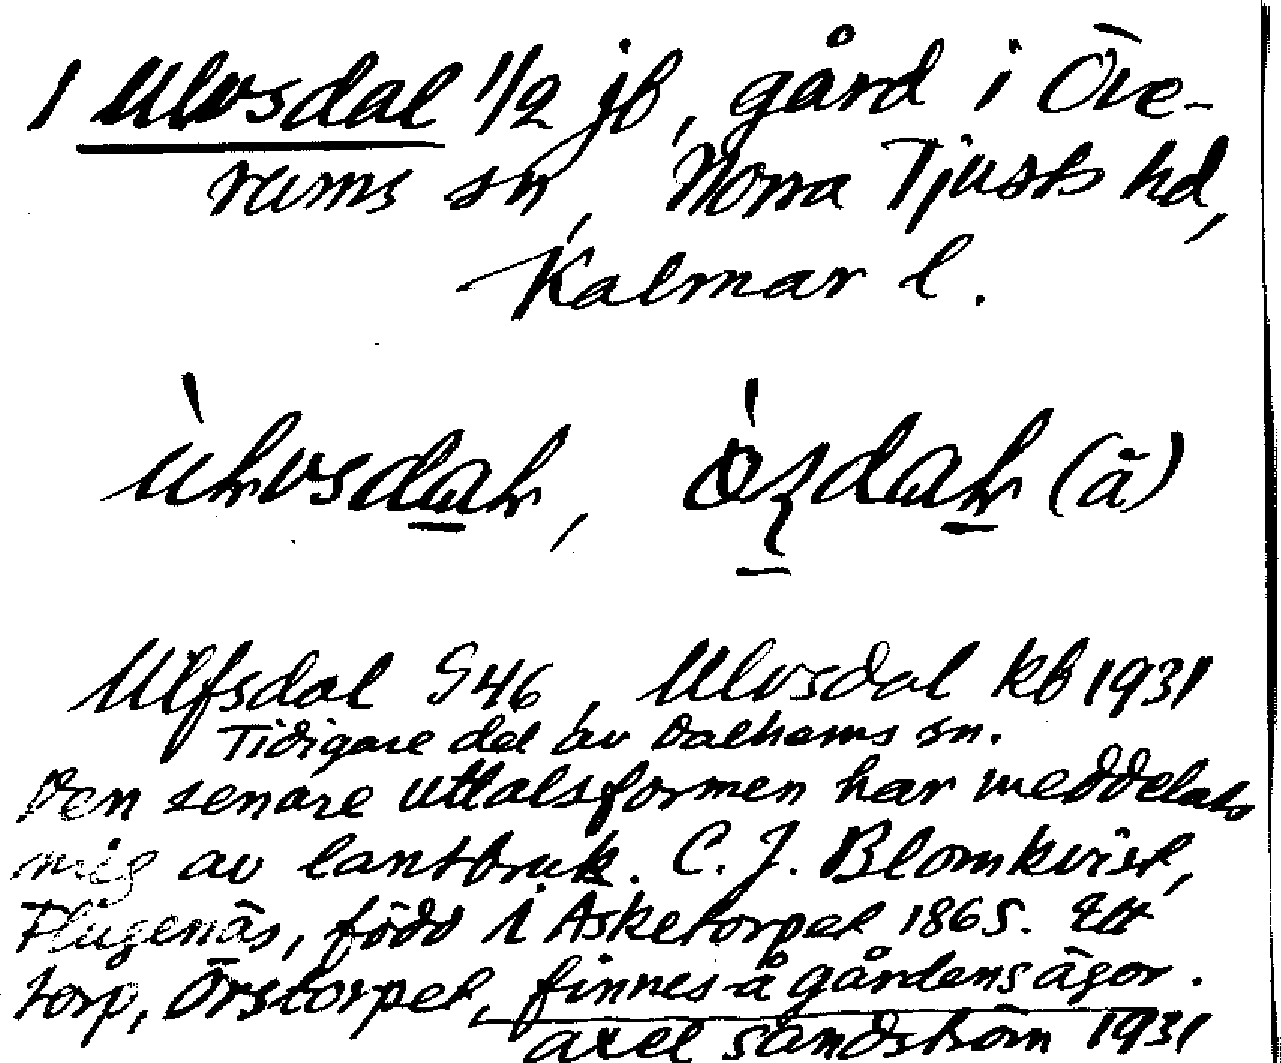 1 Ulvsdal 1/2 jb, gård i Öve-
rums sn, Norra Tjusts hd,
Kalmar l.
(ä)
Ulfsdal G46, Ulvsdal kb 1931
Tidigare del av Dalhems sn.
Den senare uttalsformen har meddelats
mig av lantbruk. C. J. Blomkvist,
Flugenäs, född i Asketorpet 1865. Ett
torp, Örstorpet, finnes å gårdens ägor.
Axel Sandström 1931